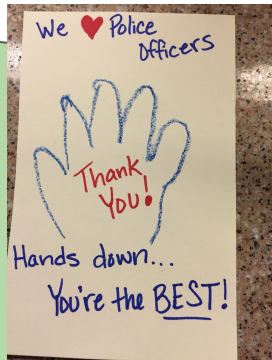 We ❤ Police
Officers
Thank
You!
Hands down...
You're the BEST!